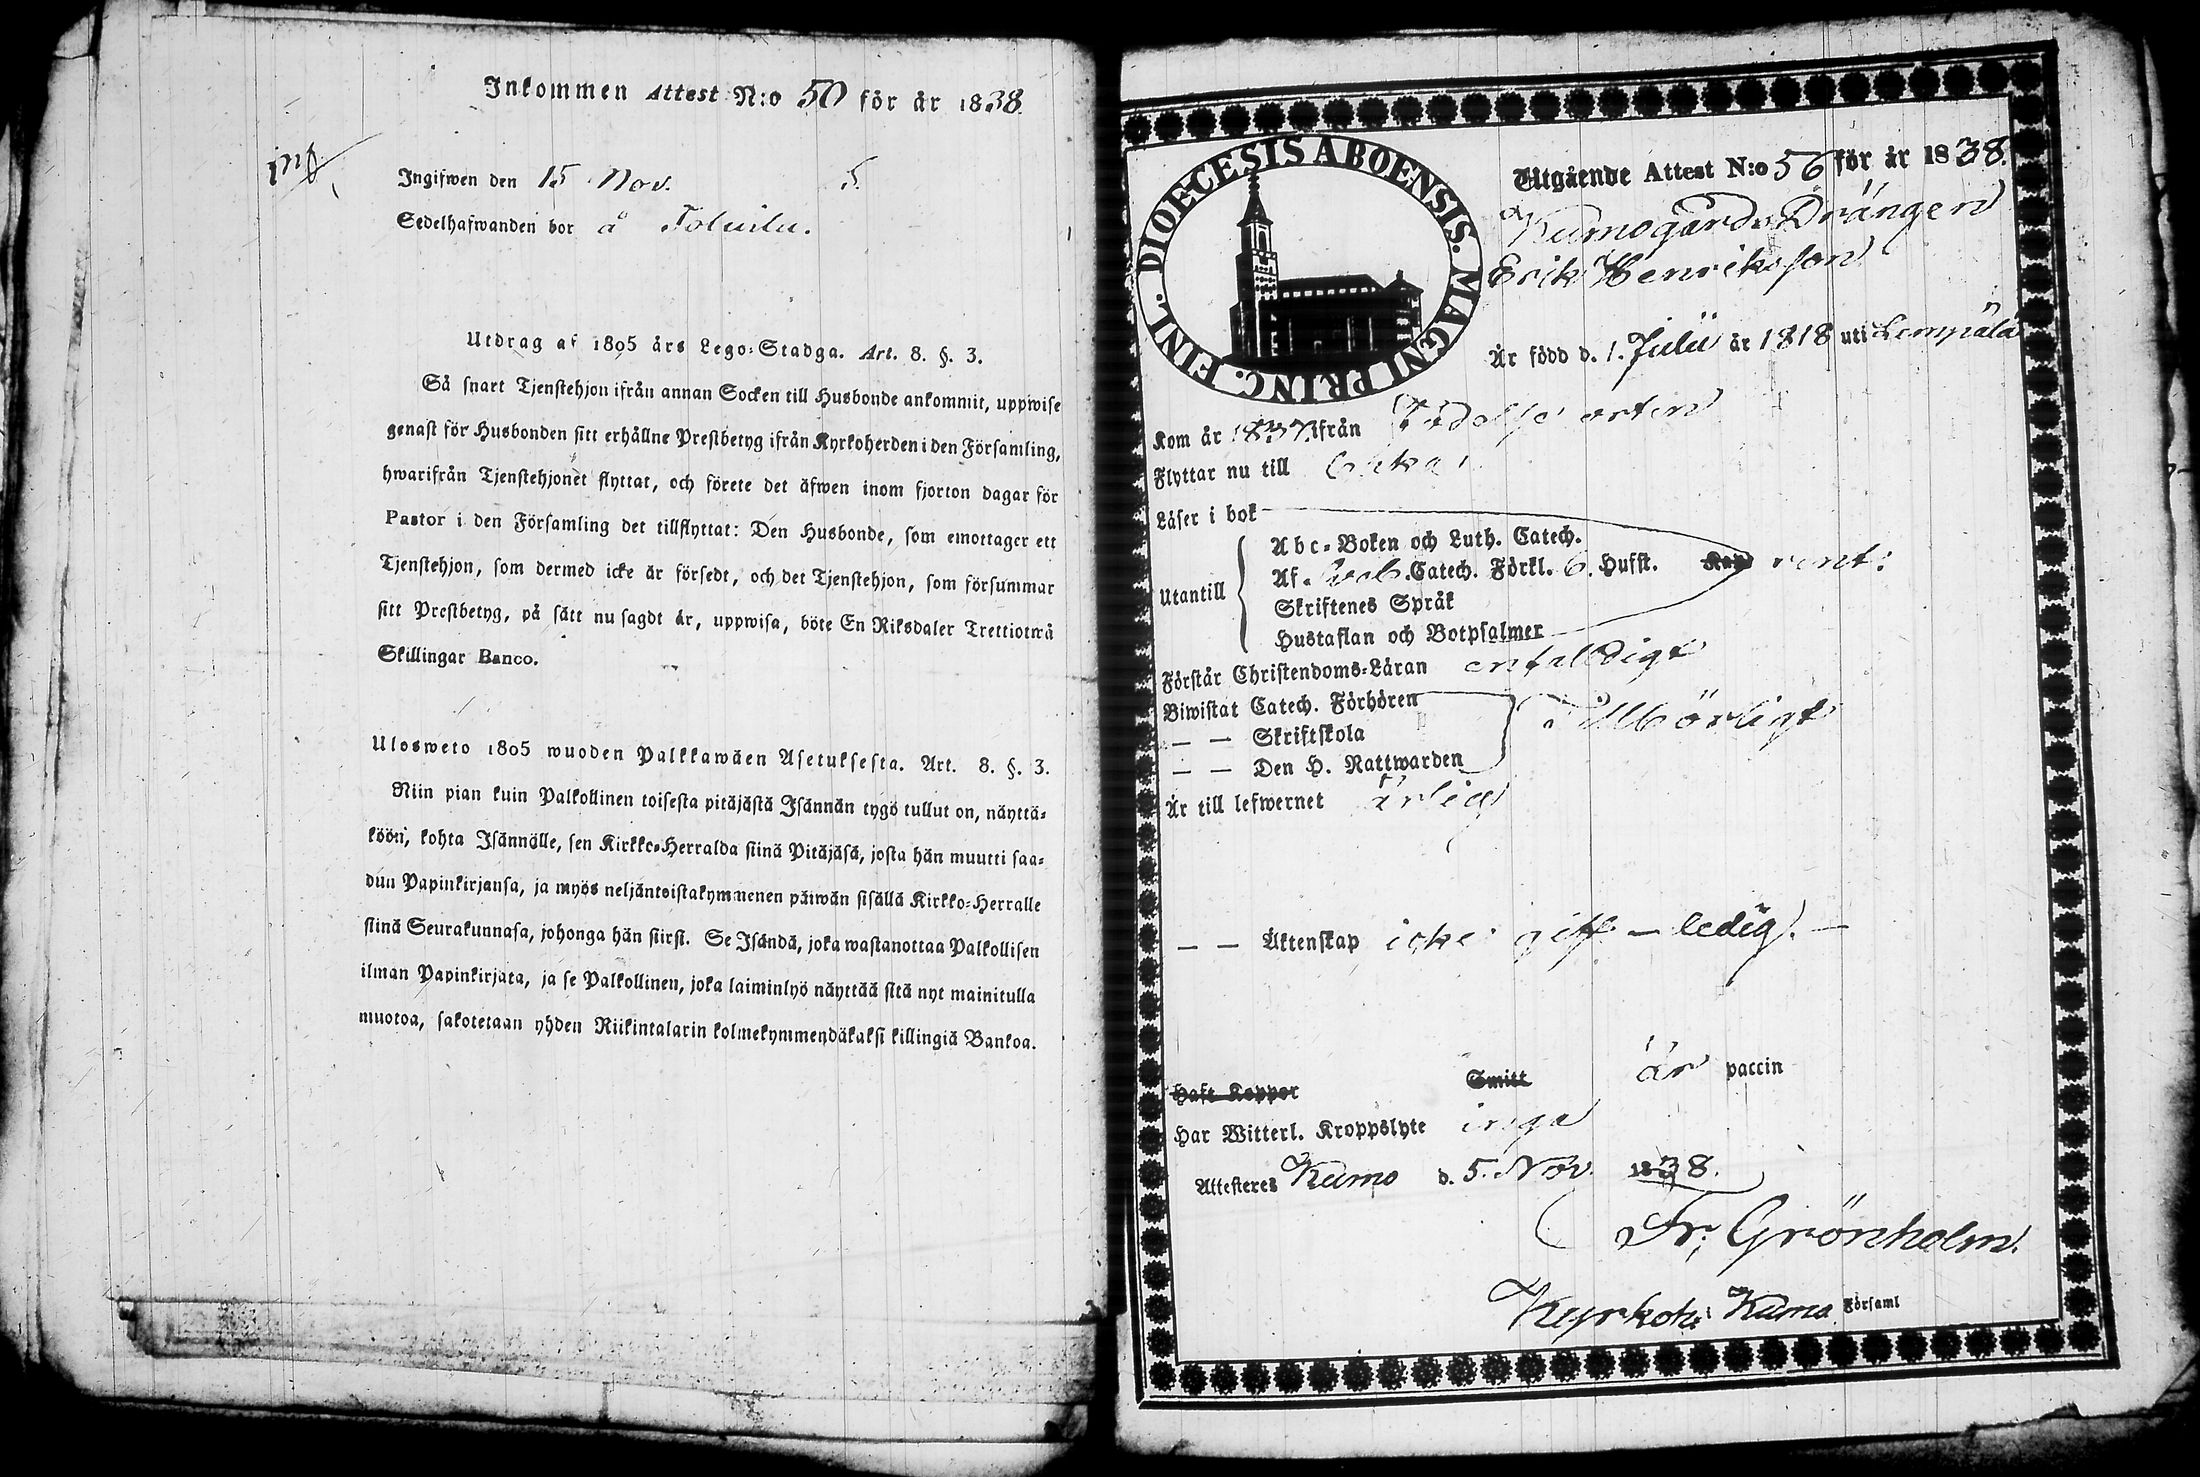 Inkommen Attest N:o 50 för år 1838.
Ingifwen den 15 Nov. 5.
Sedelhafwanden bor å
Utdrag af 1805 års Lego-Stadga. Art. 8. §. 3.
Så snart Tjenstehjon ifrån annan Socken till Husbonde ankommit, uppwise
genast för Husbonden sitt erhållne Prestbetyg ifrån Kyrkoherden i den Församling,
hwarifrån Tjenstehjonet flyttat, och förete det äfwen inom fjorton dagar för
Pastor i den Församling det tillflyttat: Den Husbonde, som emottager ett
Tjenstehjon, som dermed icke är försedt, och det Tjenstehjon, som försummar
sitt Prestbetyg, på sätt nu sagdt är, uppwisa, böte En Riksdaler Trettiotwå
Skillingar Banco.
Ulosweto 1805 wuoden Palkkawäen Asetuksesta. Art. 8. §. 3.
Niin pian kuin Palkollinen toisesta pitäjästä Isännän tygö tullut on, näyttä-
köön, kohta Isännälle, sen Kirkko-Herralda siinä Pitäjäsä, josta hän muutti saa-
dun Papinkirjansa, ja myös neljäntoistakymmenen päiwän sisällä Kirkko-Herralle
siinä Seurakunnasa, johonga hän siirsi. Se Isändä, joka wastanottaa Palkollisen
ilman Papinkirjata, ja se Palkollinen, joka laiminlyö näyttää sitä nyt mainitulla
muotoa, sakotetaan yhden Riikintalarin kolmekymmendäkaksi killingiä Bankoa.
DIOECESIS ABOENSIS. MAGNI PRINC. FINL.
Utgående Attest N:o 56 för år 1838.
Kumogårds Drängen
Erik Henriksson
Är född d. 1. Julii år 1818 uti Lempälä
Kom år 1837 ifrån Födelse orten
Flyttar nu till
Läser i bok
Utantill
Abc-Boken och Luth. Catech.
Af Sveb. Catech. Förkl. 6. Hufst. rent:
Skriftenes Språk
Hustaflan och Botpsalmer
Förstår Christendoms-Läran enfaldigt
Biwistat Catech. Förhören
— — Skriftskola Tillbörligt
— — Den H. Nattwarden
Är till lefwernet ärlig
— — Äktenskap icke gift — ledig. —
Haft Koppor Smitt är vaccin
Har Witterl. Kroppslyte inga
Attesteres Kumo d. 5. Nov. 1838.
Fr: Grönholm.
Kyrkoh: i Kumo Församl